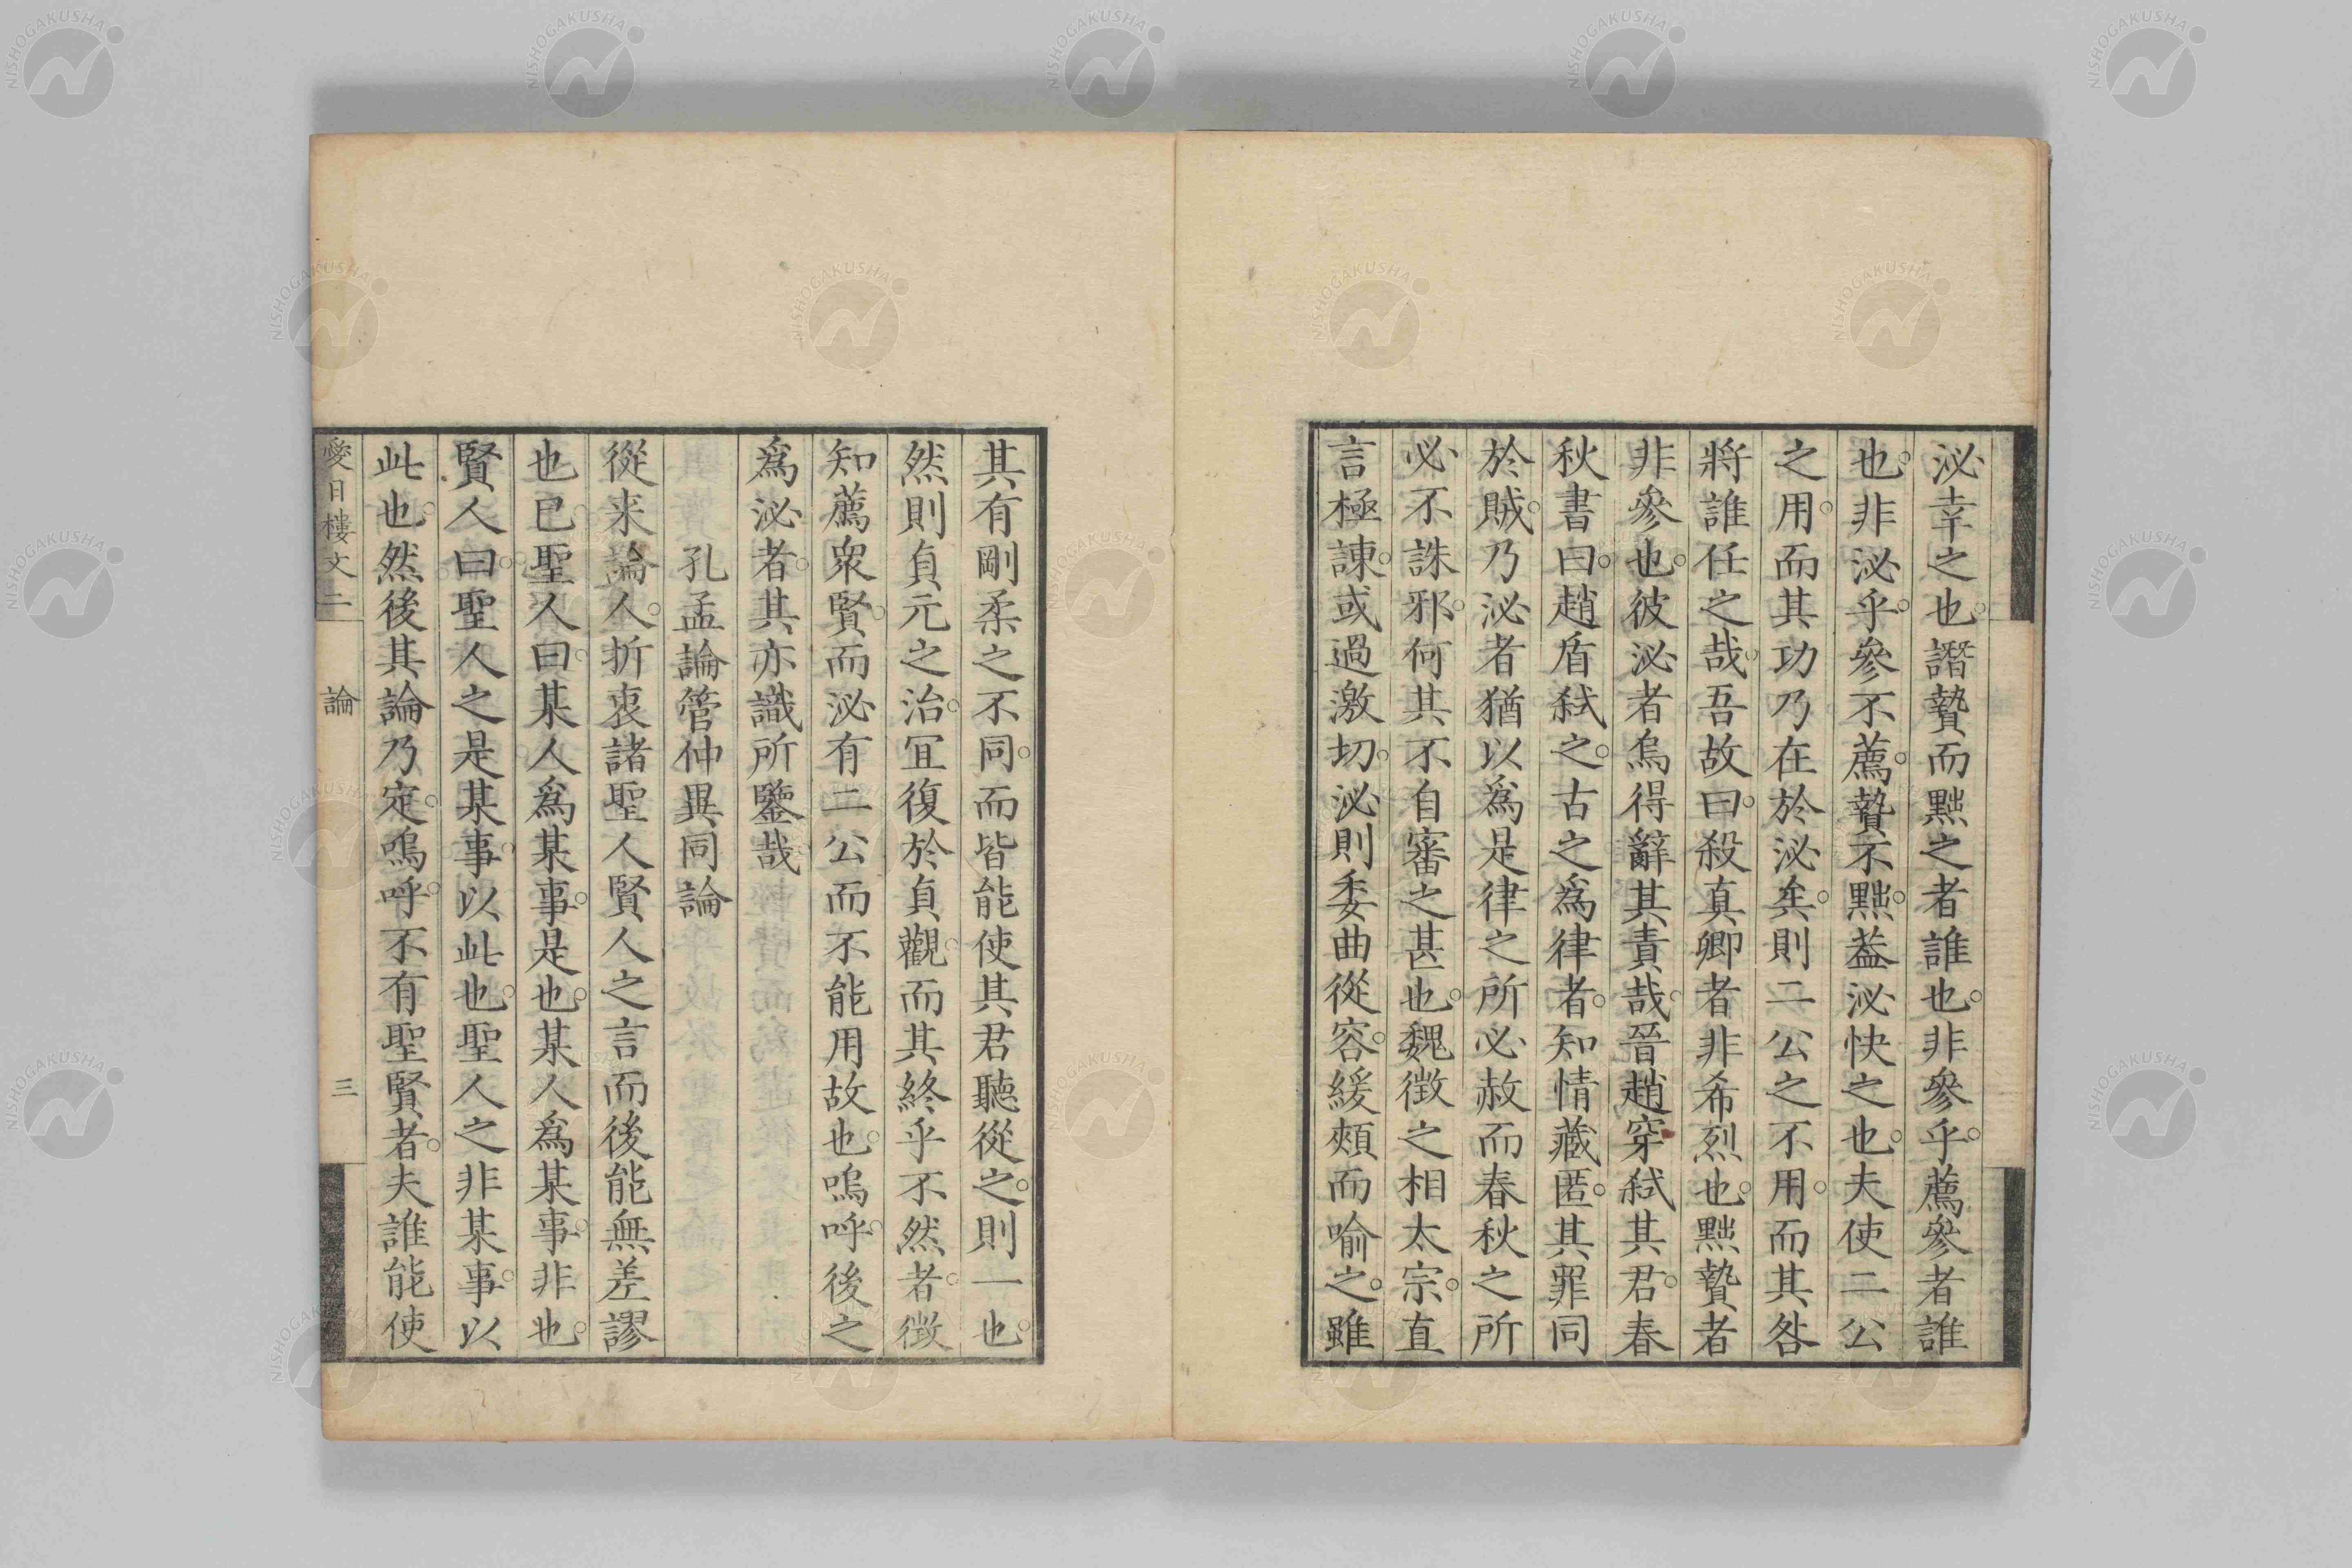 泌幸之也。譖贄而黜之者誰也。非參乎。薦參者誰
也。非泌乎。參不薦。贄不黜。葢泌快之也。夫使二公
之用。而其功乃在於泌矣。則二公之不用。而其咎
將誰任之哉。吾故曰。殺真卿者非希烈也。黜贄者
非參也。彼泌者烏得辭其責哉。晉趙穿弑其君。春
秋書曰。趙盾弑之。古之爲律者。知情藏匿。其罪同
於賊。乃泌者猶以爲是律之所必赦而春秋之所
必不誅邪。何其不自審之甚也。魏徴之相太宗。直
言極諌。或過激切。泌則委曲從容。緩頰而喻之。雖
其有剛柔之不同。而皆能使其君聽從之。則一也。
然則貞元之治。宜復於貞觀。而其終乎不然者。徴
知薦衆賢。而泌有二公而不能用故也。嗚呼。後之
爲泌者。其亦識所鑒哉
孔孟論管仲異同論
從来論人。折衷諸聖人賢人之言而後能無差謬
也已。聖人曰。某人爲某事。是也。某人爲某事。非也。
賢人曰。聖人之是某事。以此也。聖人之非某事。以
此也。然後其論乃定。嗚呼。不有聖賢者。夫誰能使
愛日樓文二
論
三
NISHOGAKUSHA